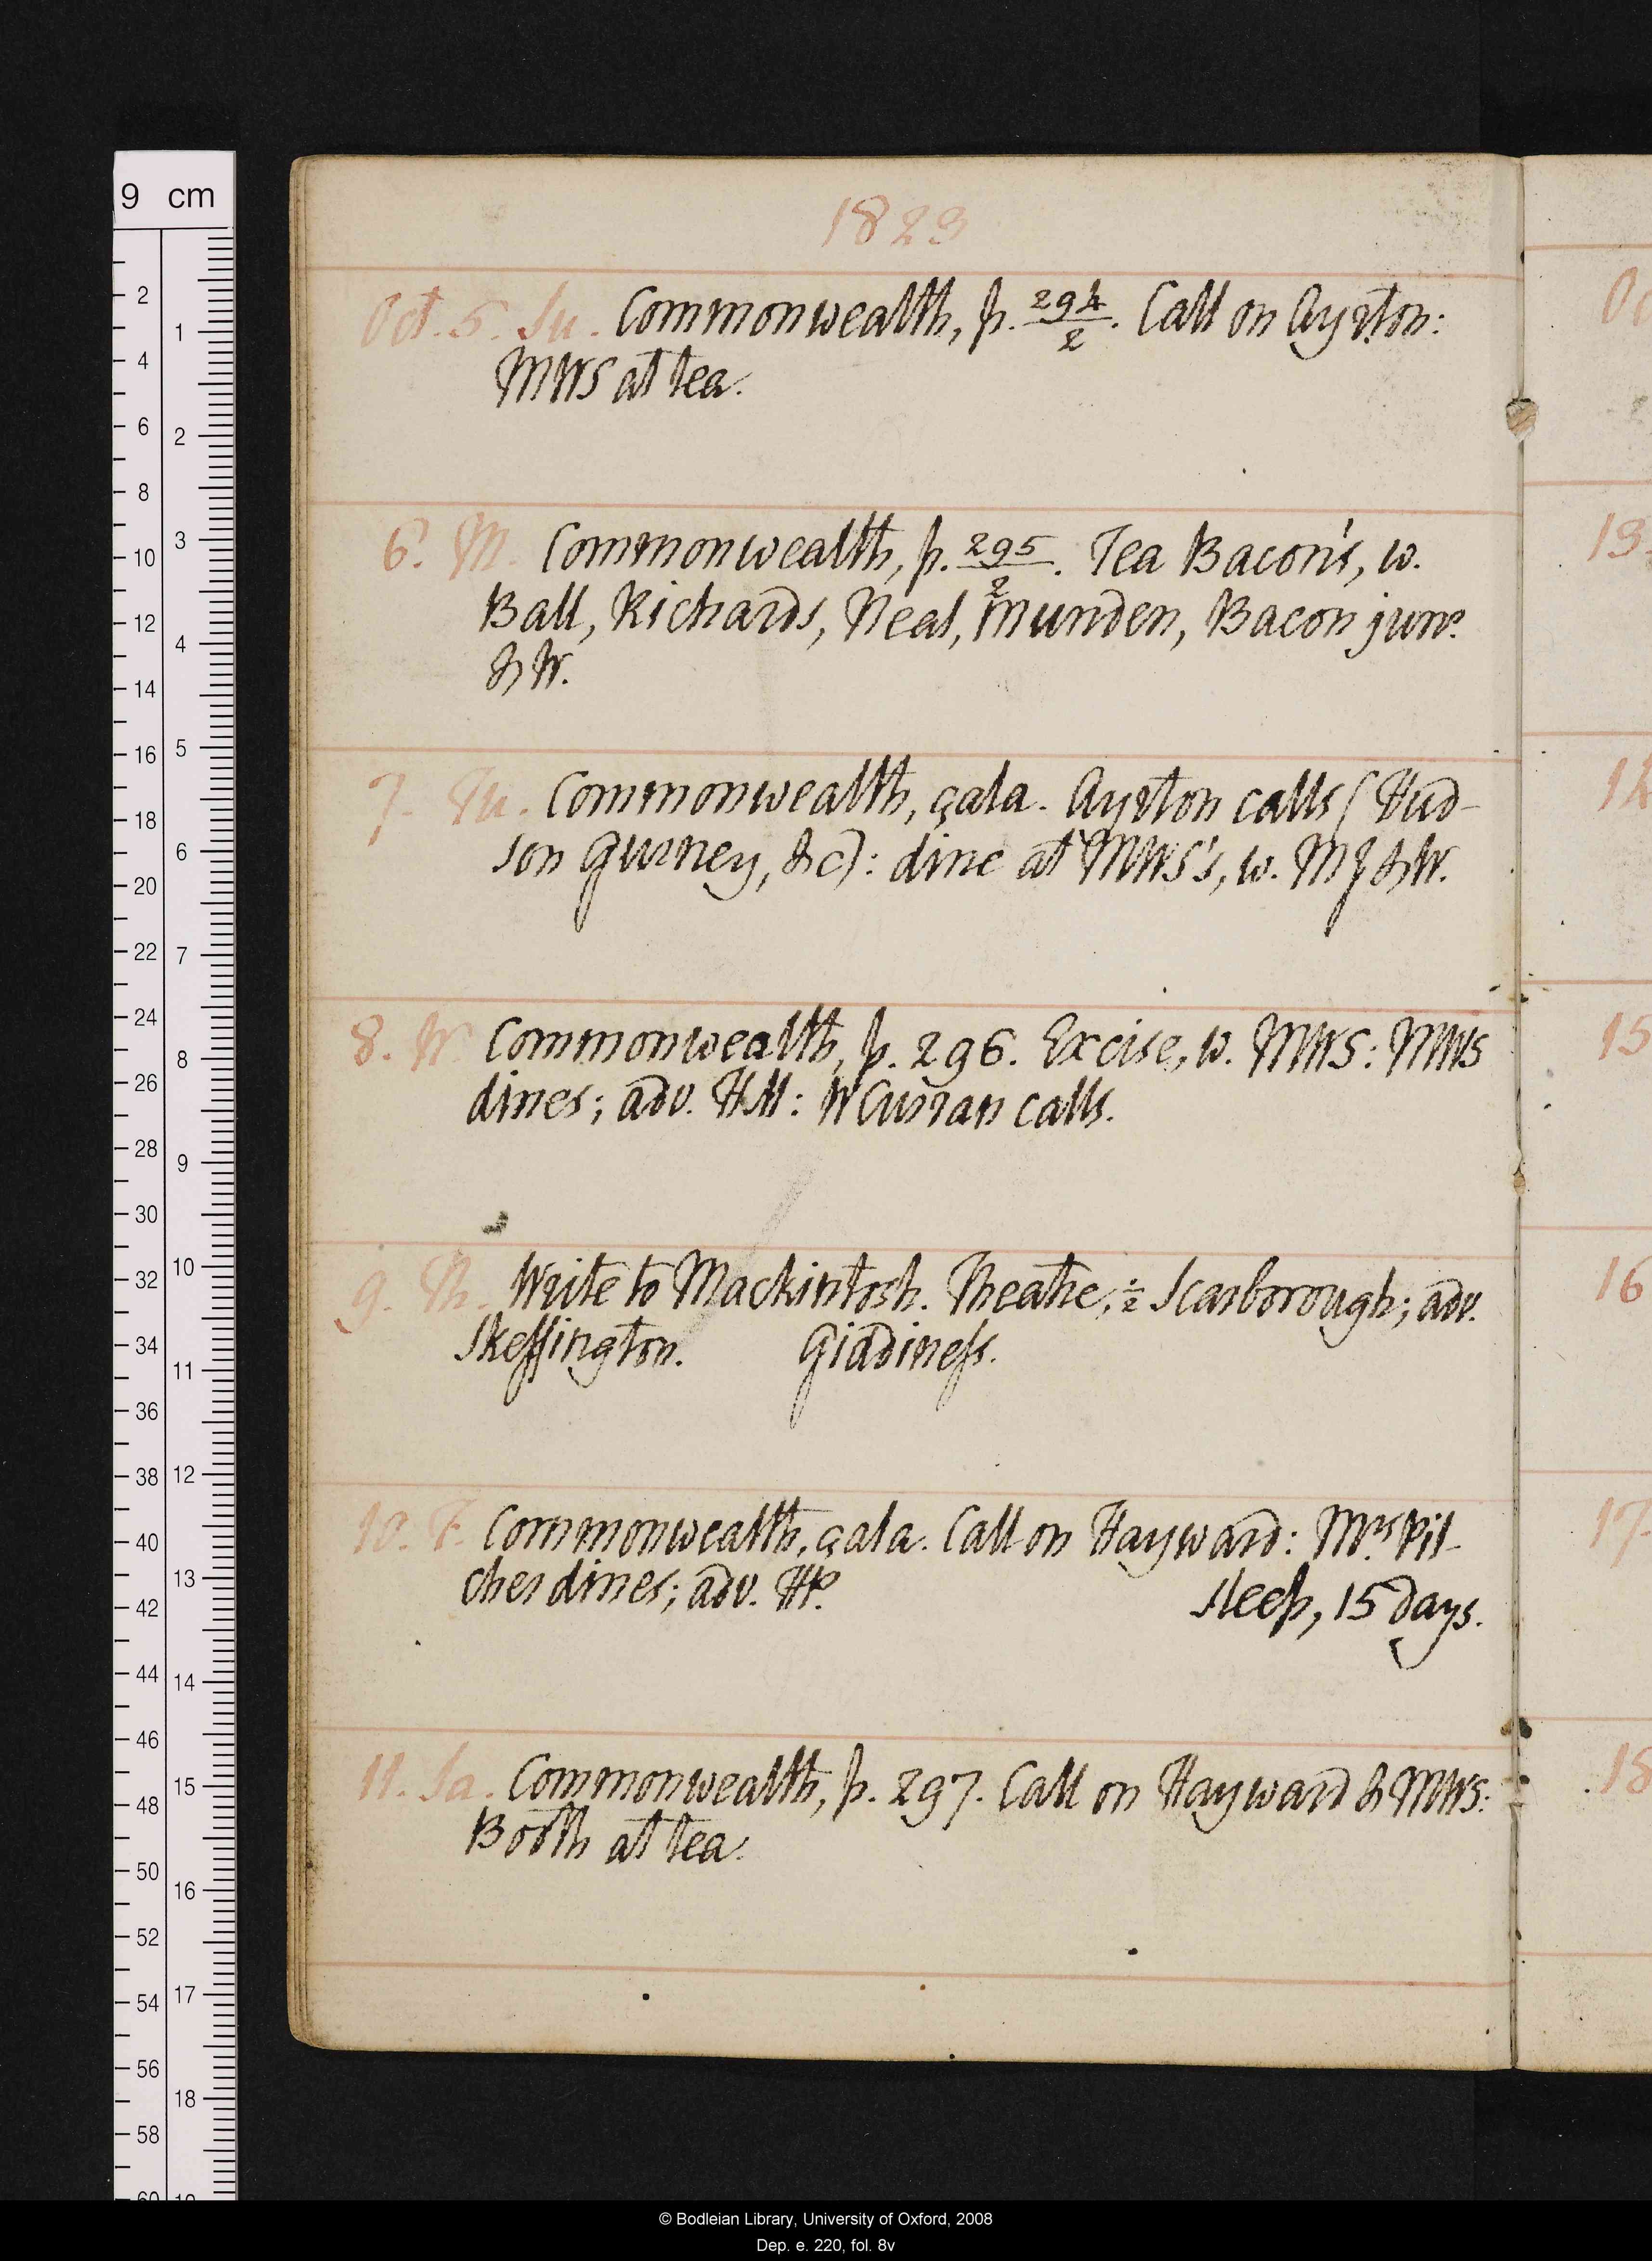 1823
Oct. 5. Su. Commonwealth, p. 294/2. Call on Ayrton:
MWS at tea.
6. M. Commonwealth, p. 295/2. Tea Bacon's, w.
Ball, Richards, Neal, Munden, Bacon junr.
& W.
7. Tu. Commonwealth, çala. Ayrton calls (Hud-
son Gurney, &c): dine at MWS's, w. MJ & W.
8. W. Commonwealth, p. 296. Excise, w. MWS: MWS
dines; adv. HM: W Curran calls.
9. Th. Write to Mackintosh. Theatre, ½ Scarborough; adv.
Skeffington. Giddiness.
10. F. Commonwealth, çala. Call on Hayward: Mrs Pil-
cher dines; adv. HP.
Sleep, 15 days.
11. Sa. Commonwealth, p. 297. Call on Hayward & MWS:
Booth at tea.
Oc
13
14
15
16
17
18
9 cm
2
4
6
8
10
12
14
16
18
20
22
24
26
28
30
32
34
36
38
40
42
44
46
48
50
52
54
56
58
60
1
2
3
4
5
6
7
8
9
10
11
12
13
14
15
16
17
18
19
© Bodleian Library, University of Oxford, 2008
Dep. e. 220, fol. 8v